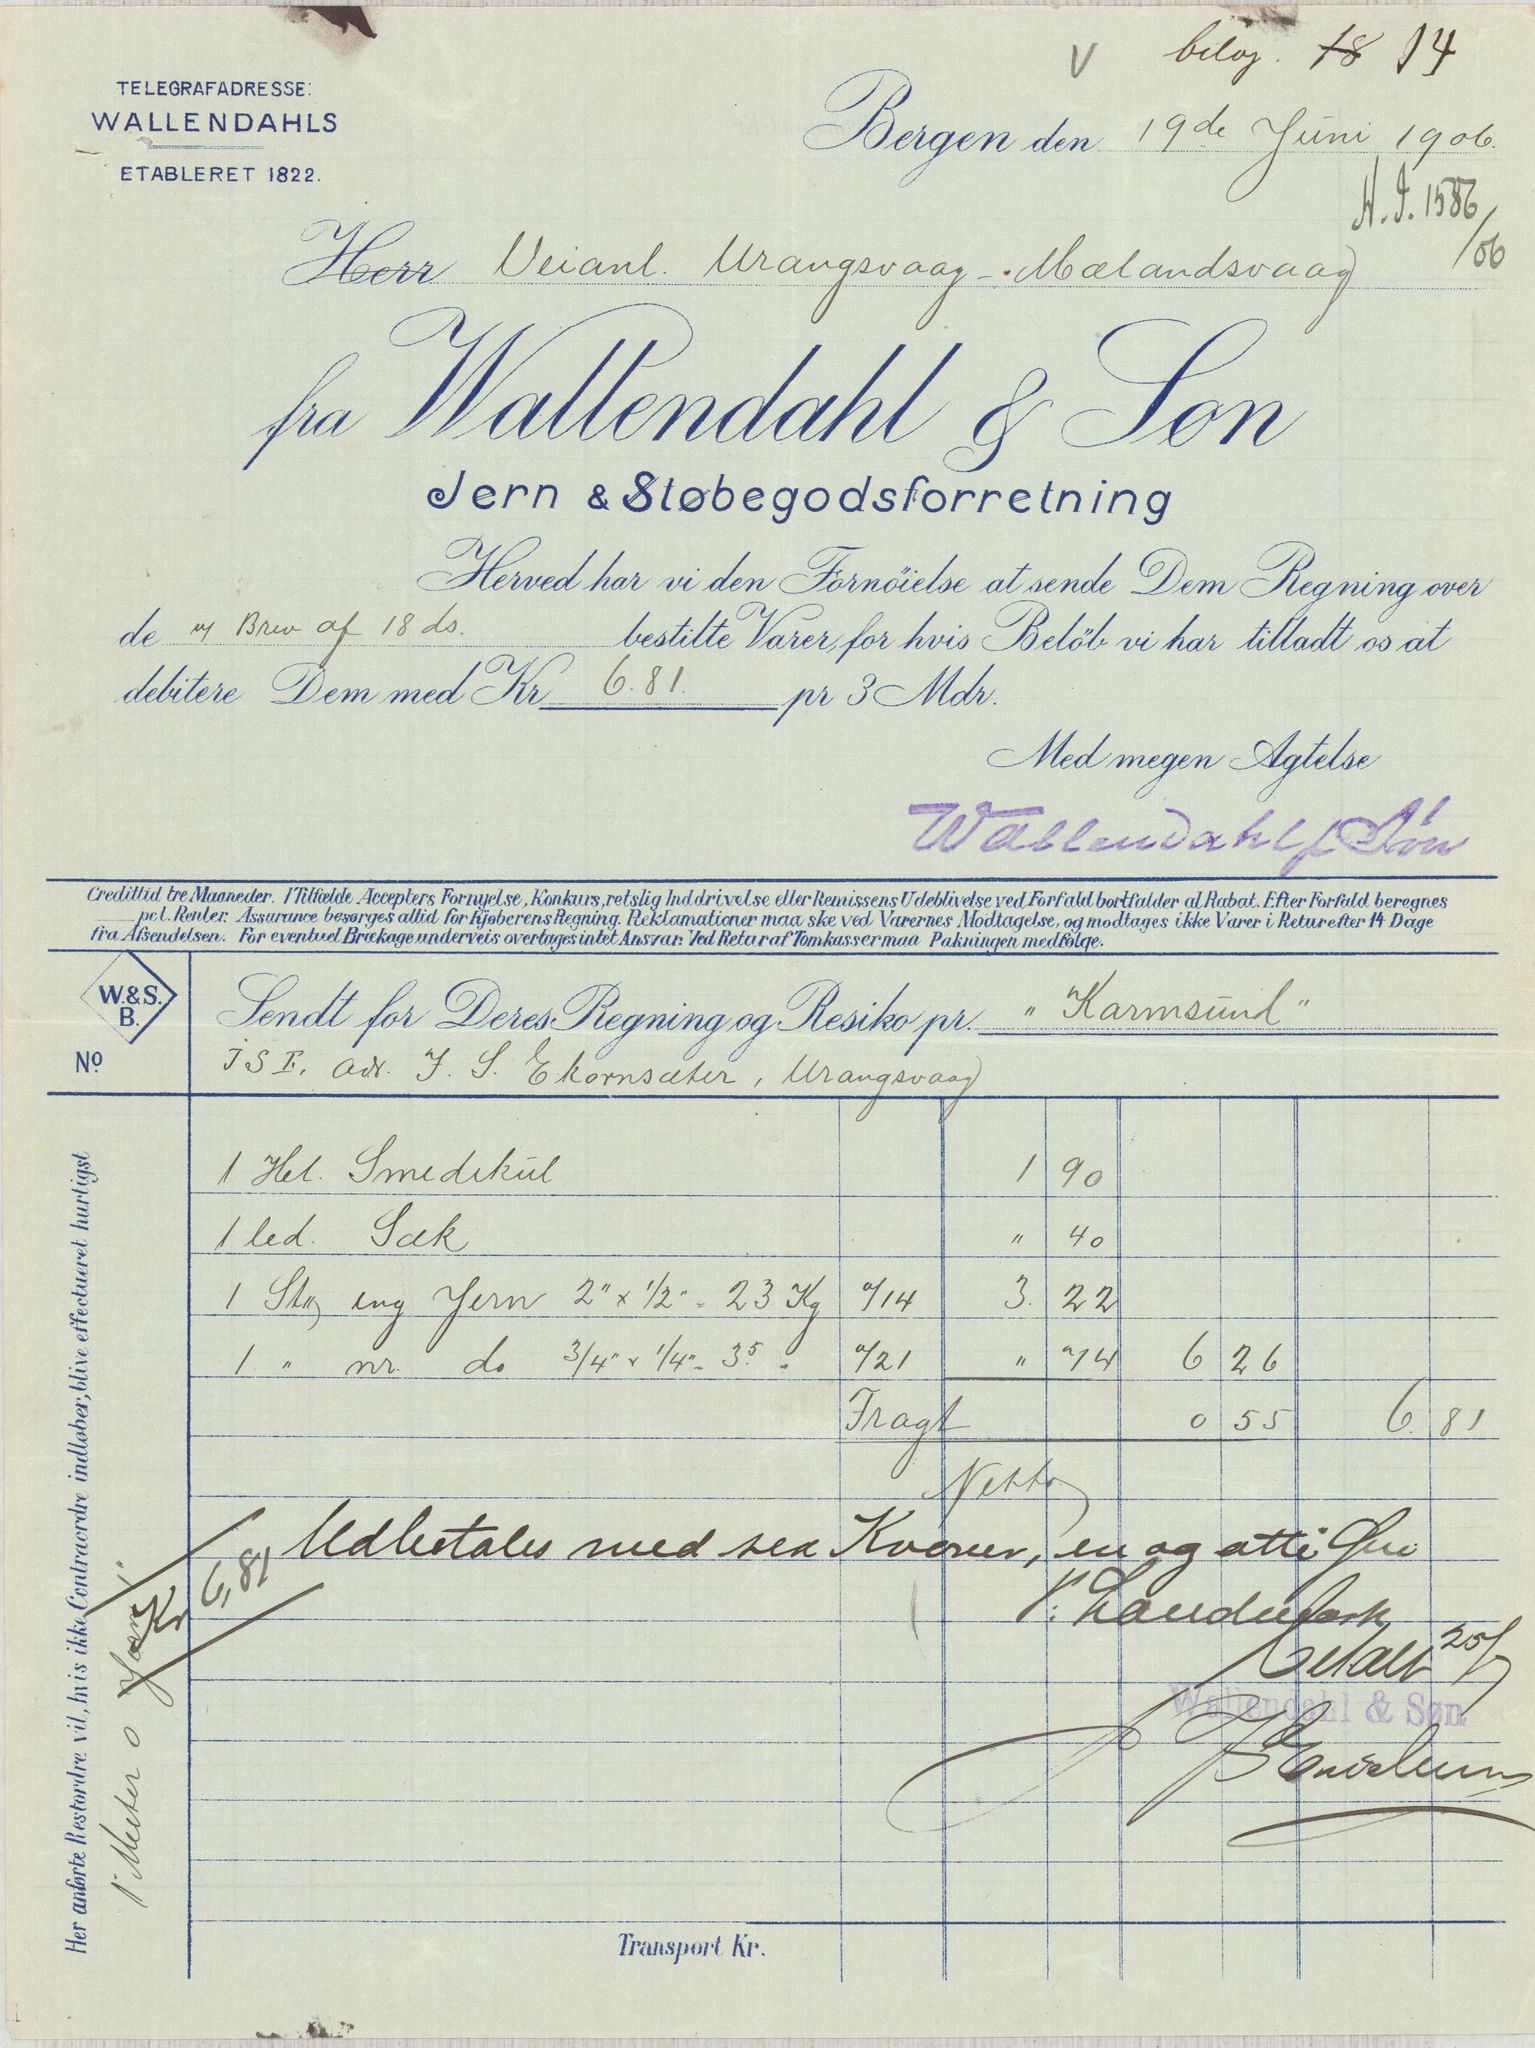 bilag. 18 14
TELEGRAFADRESSE:
WALLENDAHLS
ETABLERET 1822.
Bergen den 19de Juni 1906.
1586/06
Herr Veianl. Urangsvaag - Mælandsvaag
fra Wallendahl & Søn
Jern & Støbegodsforretning
Herved har vi den Fornöielse at sende Dem Regning over
de Brev af 18 ds. bestilte Varer, for hvis Belöb vi har tilladt os at
debitere Dem med Kr 6.81. pr 3 Mdr.
Med megen Agtelse
Wallendahl & Søn
Credittid tre Maaneder. I Tilfælde Accepters Fornyelse, Konkurs, retslig Inddrivelse eller Remissens Udeblivelse ved Forfald bortfalder al Rabat. Efter Forfald beregnes
pct. Renter. Assurance besørges altid for Kjøberens Regning. Reklamationer maa ske ved Varernes Modtagelse, og modtages ikke Varer i Retur efter 14 Dage
fra Afsendelsen. For eventuel Brækage underveis overtages intet Ansvar. Ved Retur af Tomkasser maa Pakningen medfølge.
W. & S.
B.
Sendt for Deres Regning og Resiko pr. "Karmsund"
No
JSE, adr. J. S. Ekornsæter, Urangsvaag
1 Hel. Smedekul 1 90
1 led. Sæk " 40
1 Stg eng Jern 2" x 1/2" - 23 Kg a/14 3. 22
1 " nr. do 3/4" x 1/4" - 3.5 " a/21 " 74 6 26
Fragt 0 55 6. 81
Netto
Udbetales med sex Kroner, en og otti Øre
Kr 6,81
betalt 25/7
Wallendahl & Søn
Her anførte Restordre vil, hvis ikke Contraordre indløber, blive effectueret hurtigst
1 Meter o
Transport Kr.